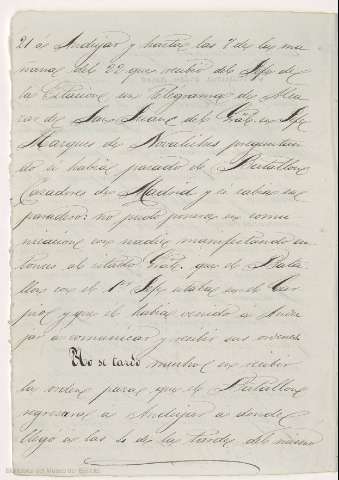 21 á Andujar y hasta las 7 de la ma
ñana del 22 que recibió del Jefe de
la Estacion un telegrama de Alca
zar de San Juan del Gral. en Jefe
Marques de Novaliches preguntan
do si habia pasado el Batallon
Cazadores de Madrid y si sabia su
paradero: no pudo ponerse en comu
nicacion con nadie manifestando en
tonces al citado Gral. que el Bata
llon con el 1er Jefe estaba en el Car
pio y que el habia venido a Andu
jar a comunicar y recibir sus ordenes
No se tardó mucho en recibir
la orden para que el Batallon
regresara a Andujar a donde
llegó a las 6 de la tarde del mismo